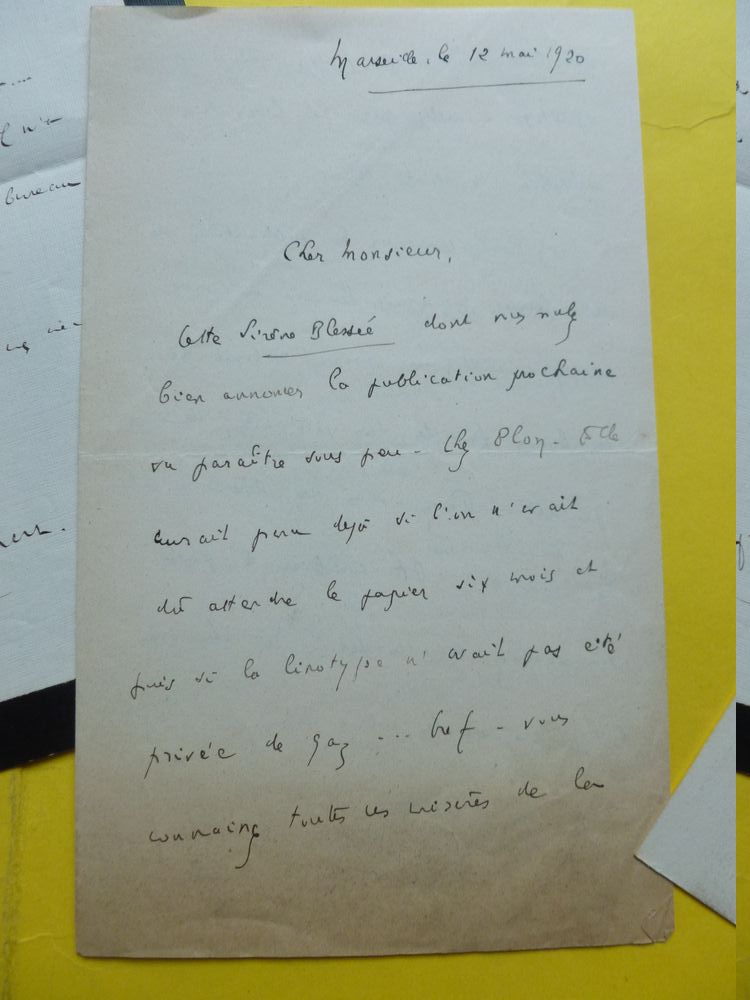 Marseille, le 12 mai 1920
Cher Monsieur,
Cette Sirène Blessée dont vous voulez
bien annoncer la publication prochaine
va paraître sous peu - chez Plon. Elle
aurait paru déjà si l'on n'avait
dû attendre le papier six mois et
puis si la linotype n'avait pas été
privée de gaz ... bref - vous
connaissez toutes les misères de la
bureau